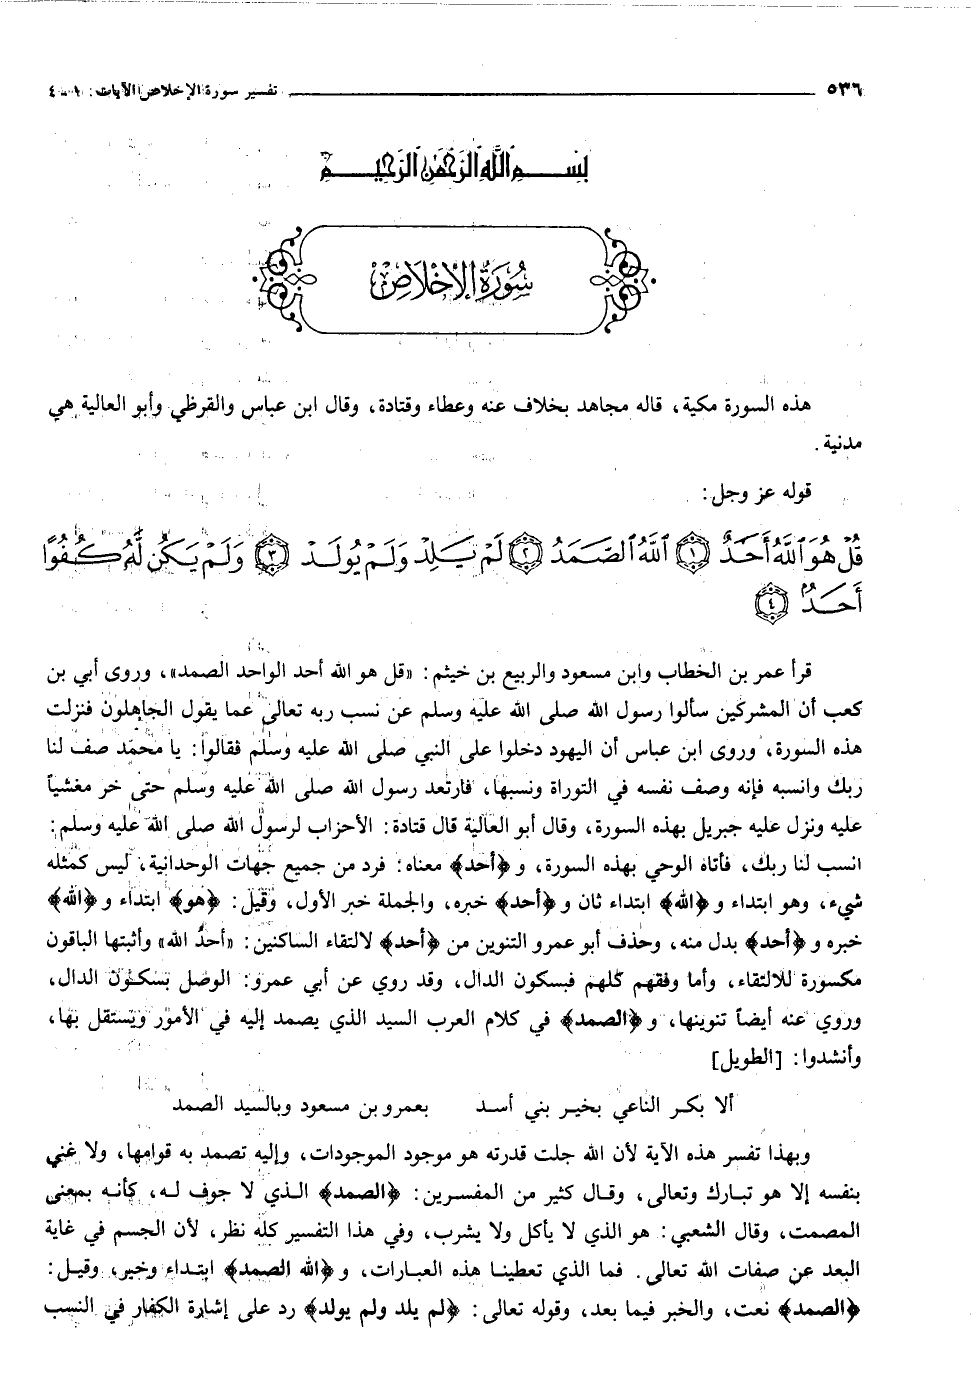 ٥٣٦ تفسير سورة الإخلاص/ الآيات: ١ - ٤
بِسْمِ اللَّهِ الرَّحْمَنِ الرَّحِيمِ
سُورَةُ الإِخْلَاصِ
هذه السورة مكية، قاله مجاهد بخلاف عنه وعطاء وقتادة، وقال ابن عباس والقرظي وأبو العالية هي
مدنية.
قوله عز وجل:
قُلْ هُوَ ٱللَّهُ أَحَدٌ ﴿١﴾ ٱللَّهُ ٱلصَّمَدُ ﴿٢﴾ لَمْ يَلِدْ وَلَمْ يُولَدْ ﴿٣﴾ وَلَمْ يَكُن لَّهُۥ كُفُوًا
أَحَدٌۢ ﴿٤﴾
قرأ عمر بن الخطاب وابن مسعود والربيع بن خيثم: «قل هو الله أحد الواحد الصمد»، وروى أبي بن
كعب أن المشركين سألوا رسول الله صلى الله عليه وسلم عن نسب ربه تعالى عما يقول الجاهلون فنزلت
هذه السورة، وروى ابن عباس أن اليهود دخلوا على النبي صلى الله عليه وسلم فقالوا: يا محمد صف لنا
ربك وانسبه فإنه وصف نفسه في التوراة ونسبها، فارتعد رسول الله صلى الله عليه وسلم حتى خر مغشياً
عليه ونزل عليه جبريل بهذه السورة، وقال أبو العالية قال قتادة: الأحزاب لرسول الله صلى الله عليه وسلم:
انسب لنا ربك، فأتاه الوحي بهذه السورة، و ﴿أحد﴾ معناه: فرد من جميع جهات الوحدانية، ليس كمثله
شيء، وهو ابتداء و ﴿الله﴾ ابتداء ثان و ﴿أحد﴾ خبره، والجملة خبر الأول، وقيل: ﴿هو﴾ ابتداء و ﴿الله﴾
خبره و ﴿أحد﴾ بدل منه، وحذف أبو عمرو التنوين من ﴿أحد﴾ لالتقاء الساكنين: «أحدُ الله» وأثبتها الباقون
مكسورة للالتقاء، وأما وقفهم كلهم فبسكون الدال، وقد روي عن أبي عمرو: الوصل بسكون الدال،
وروي عنه أيضاً تنوينها، و ﴿الصمد﴾ في كلام العرب السيد الذي يصمد إليه في الأمور ويستقل بها،
وأنشدوا: [الطويل]
ألا بكر الناعي بخير بني أسد بعمرو بن مسعود وبالسيد الصمد
وبهذا تفسر هذه الآية لأن الله جلت قدرته هو موجود الموجودات، وإليه تصمد به قوامها، ولا غني
بنفسه إلا هو تبارك وتعالى، وقال كثير من المفسرين: ﴿الصمد﴾ الذي لا جوف له، كأنه بمعنى
المصمت، وقال الشعبي: هو الذي لا يأكل ولا يشرب، وفي هذا التفسير كله نظر، لأن الجسم في غاية
البعد عن صفات الله تعالى. فما الذي تعطينا هذه العبارات، و ﴿الله الصمد﴾ ابتداء وخبر، وقيل:
﴿الصمد﴾ نعت، والخبر فيما بعد، وقوله تعالى: ﴿لم يلد ولم يولد﴾ رد على إشارة الكفار في النسب